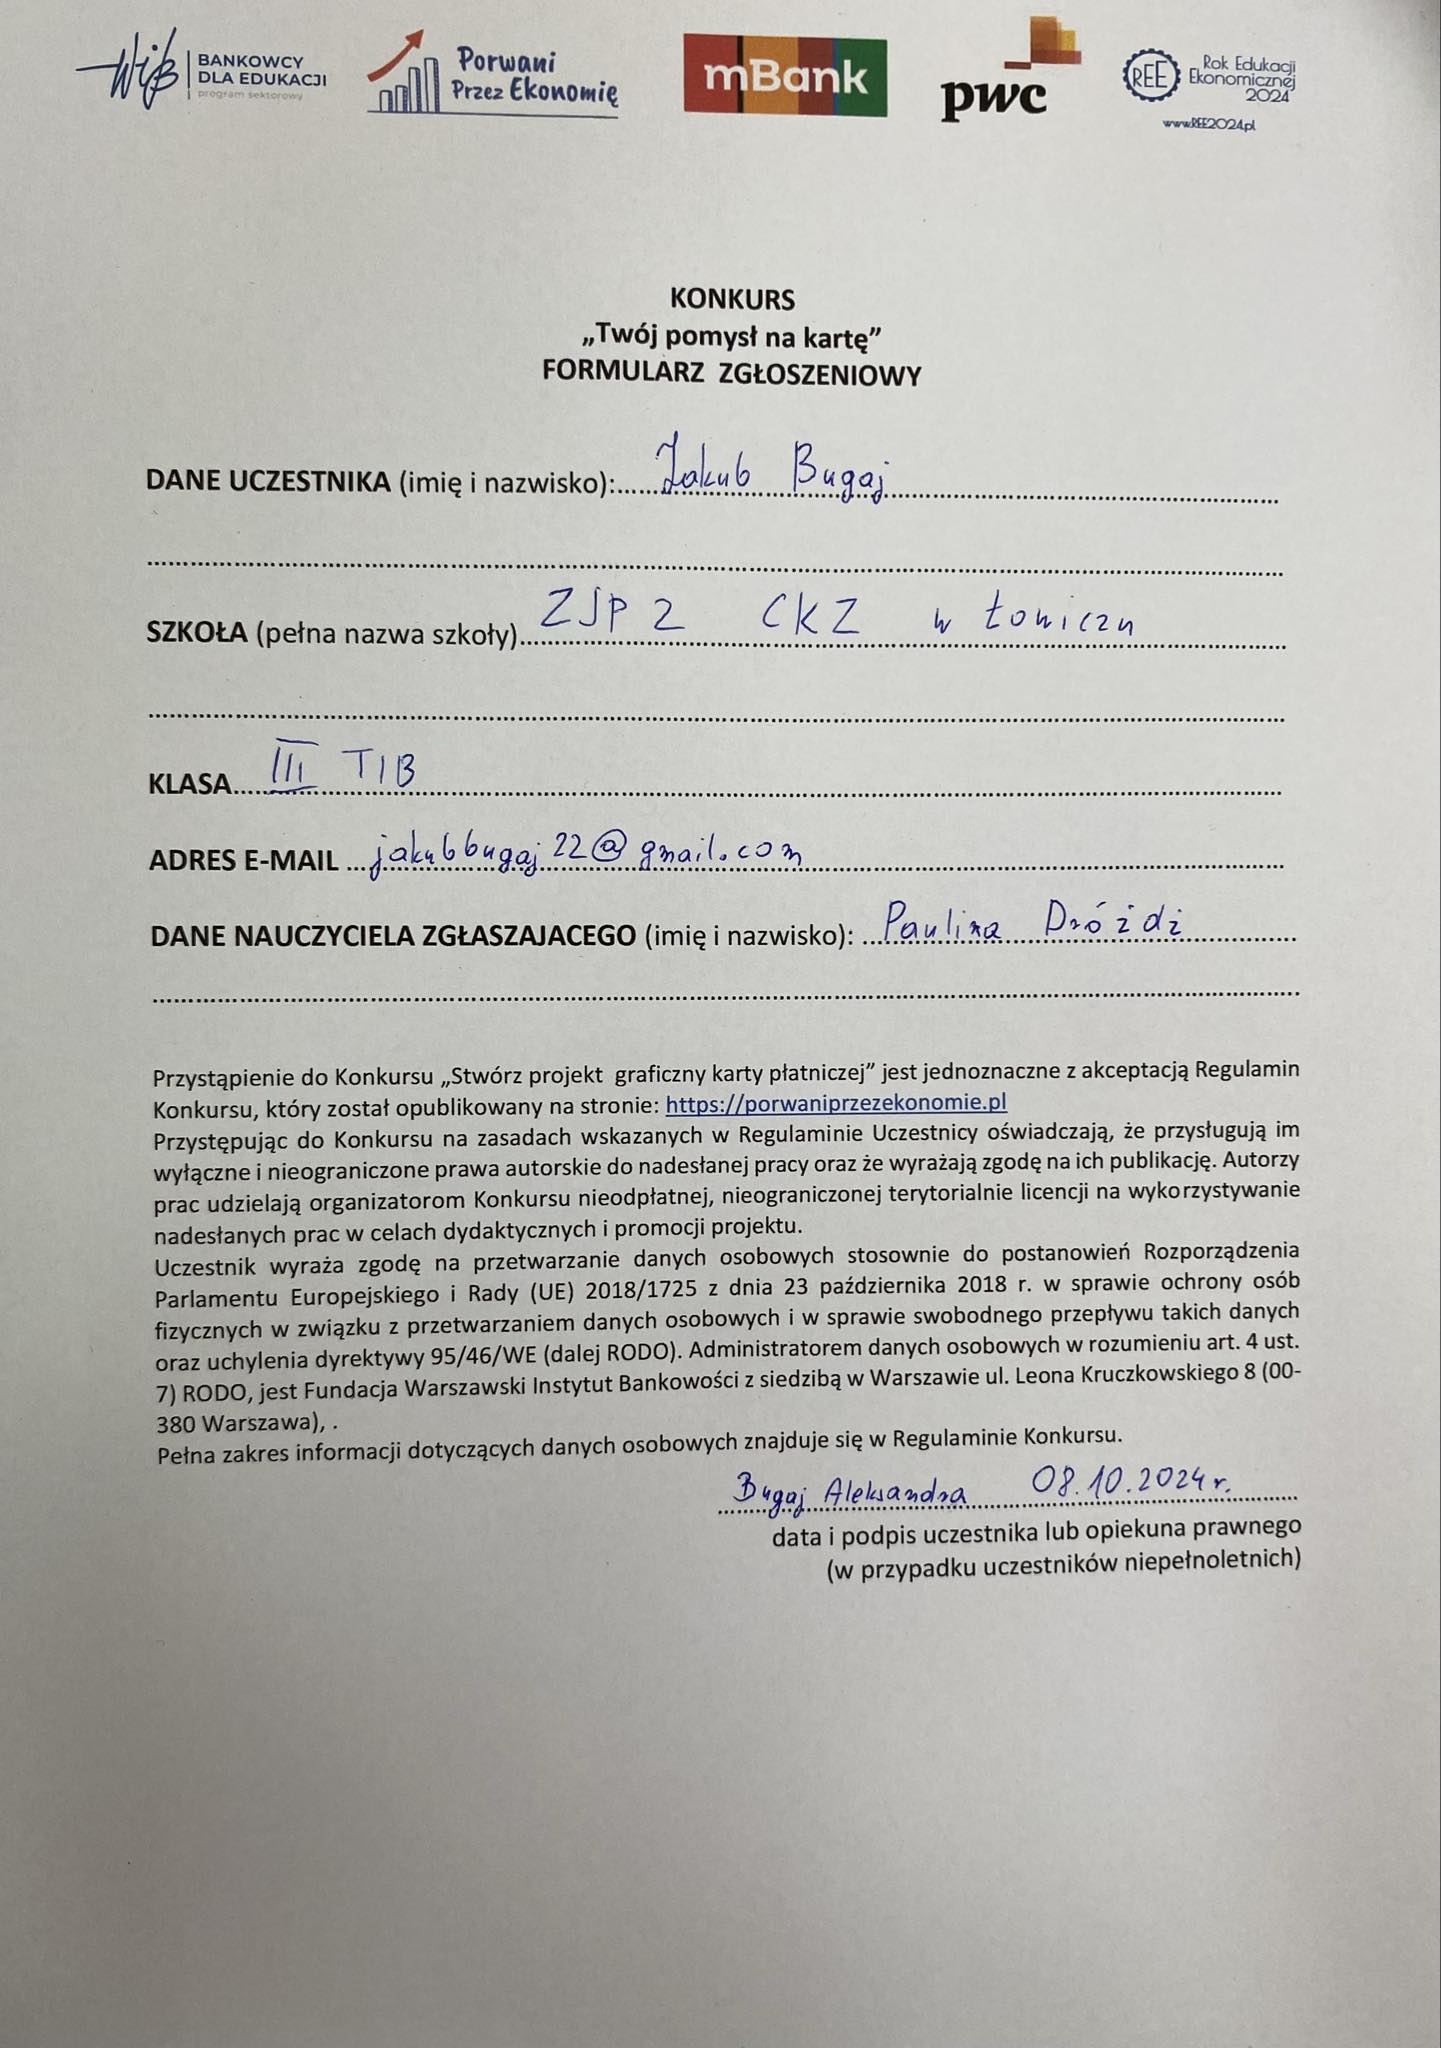 WiB BANKOWCY
DLA EDUKACJI
program sektorowy
Porwani
Przez Ekonomię
mBank
pwc
REE Rok Edukacji
Ekonomicznej
2024
www.REE2024.pl
KONKURS
„Twój pomysł na kartę”
FORMULARZ ZGŁOSZENIOWY
DANE UCZESTNIKA (imię i nazwisko):......Jakub Bugaj
SZKOŁA (pełna nazwa szkoły) ZSP 2 CKZ w Łowiczu
KLASA..... III TIB
ADRES E-MAIL ...jakubbugaj22@gmail.com
DANE NAUCZYCIELA ZGŁASZAJACEGO (imię i nazwisko): ...Paulina Dróżdż
Przystąpienie do Konkursu „Stwórz projekt graficzny karty płatniczej” jest jednoznaczne z akceptacją Regulamin
Konkursu, który został opublikowany na stronie: https://porwaniprzezekonomie.pl
Przystępując do Konkursu na zasadach wskazanych w Regulaminie Uczestnicy oświadczają, że przysługują im
wyłączne i nieograniczone prawa autorskie do nadesłanej pracy oraz że wyrażają zgodę na ich publikację. Autorzy
prac udzielają organizatorom Konkursu nieodpłatnej, nieograniczonej terytorialnie licencji na wykorzystywanie
nadesłanych prac w celach dydaktycznych i promocji projektu.
Uczestnik wyraża zgodę na przetwarzanie danych osobowych stosownie do postanowień Rozporządzenia
Parlamentu Europejskiego i Rady (UE) 2018/1725 z dnia 23 października 2018 r. w sprawie ochrony osób
fizycznych w związku z przetwarzaniem danych osobowych i w sprawie swobodnego przepływu takich danych
oraz uchylenia dyrektywy 95/46/WE (dalej RODO). Administratorem danych osobowych w rozumieniu art. 4 ust.
7) RODO, jest Fundacja Warszawski Instytut Bankowości z siedzibą w Warszawie ul. Leona Kruczkowskiego 8 (00-
380 Warszawa), .
Pełna zakres informacji dotyczących danych osobowych znajduje się w Regulaminie Konkursu.
Bugaj Aleksandra 08.10.2024 r.
data i podpis uczestnika lub opiekuna prawnego
(w przypadku uczestników niepełnoletnich)